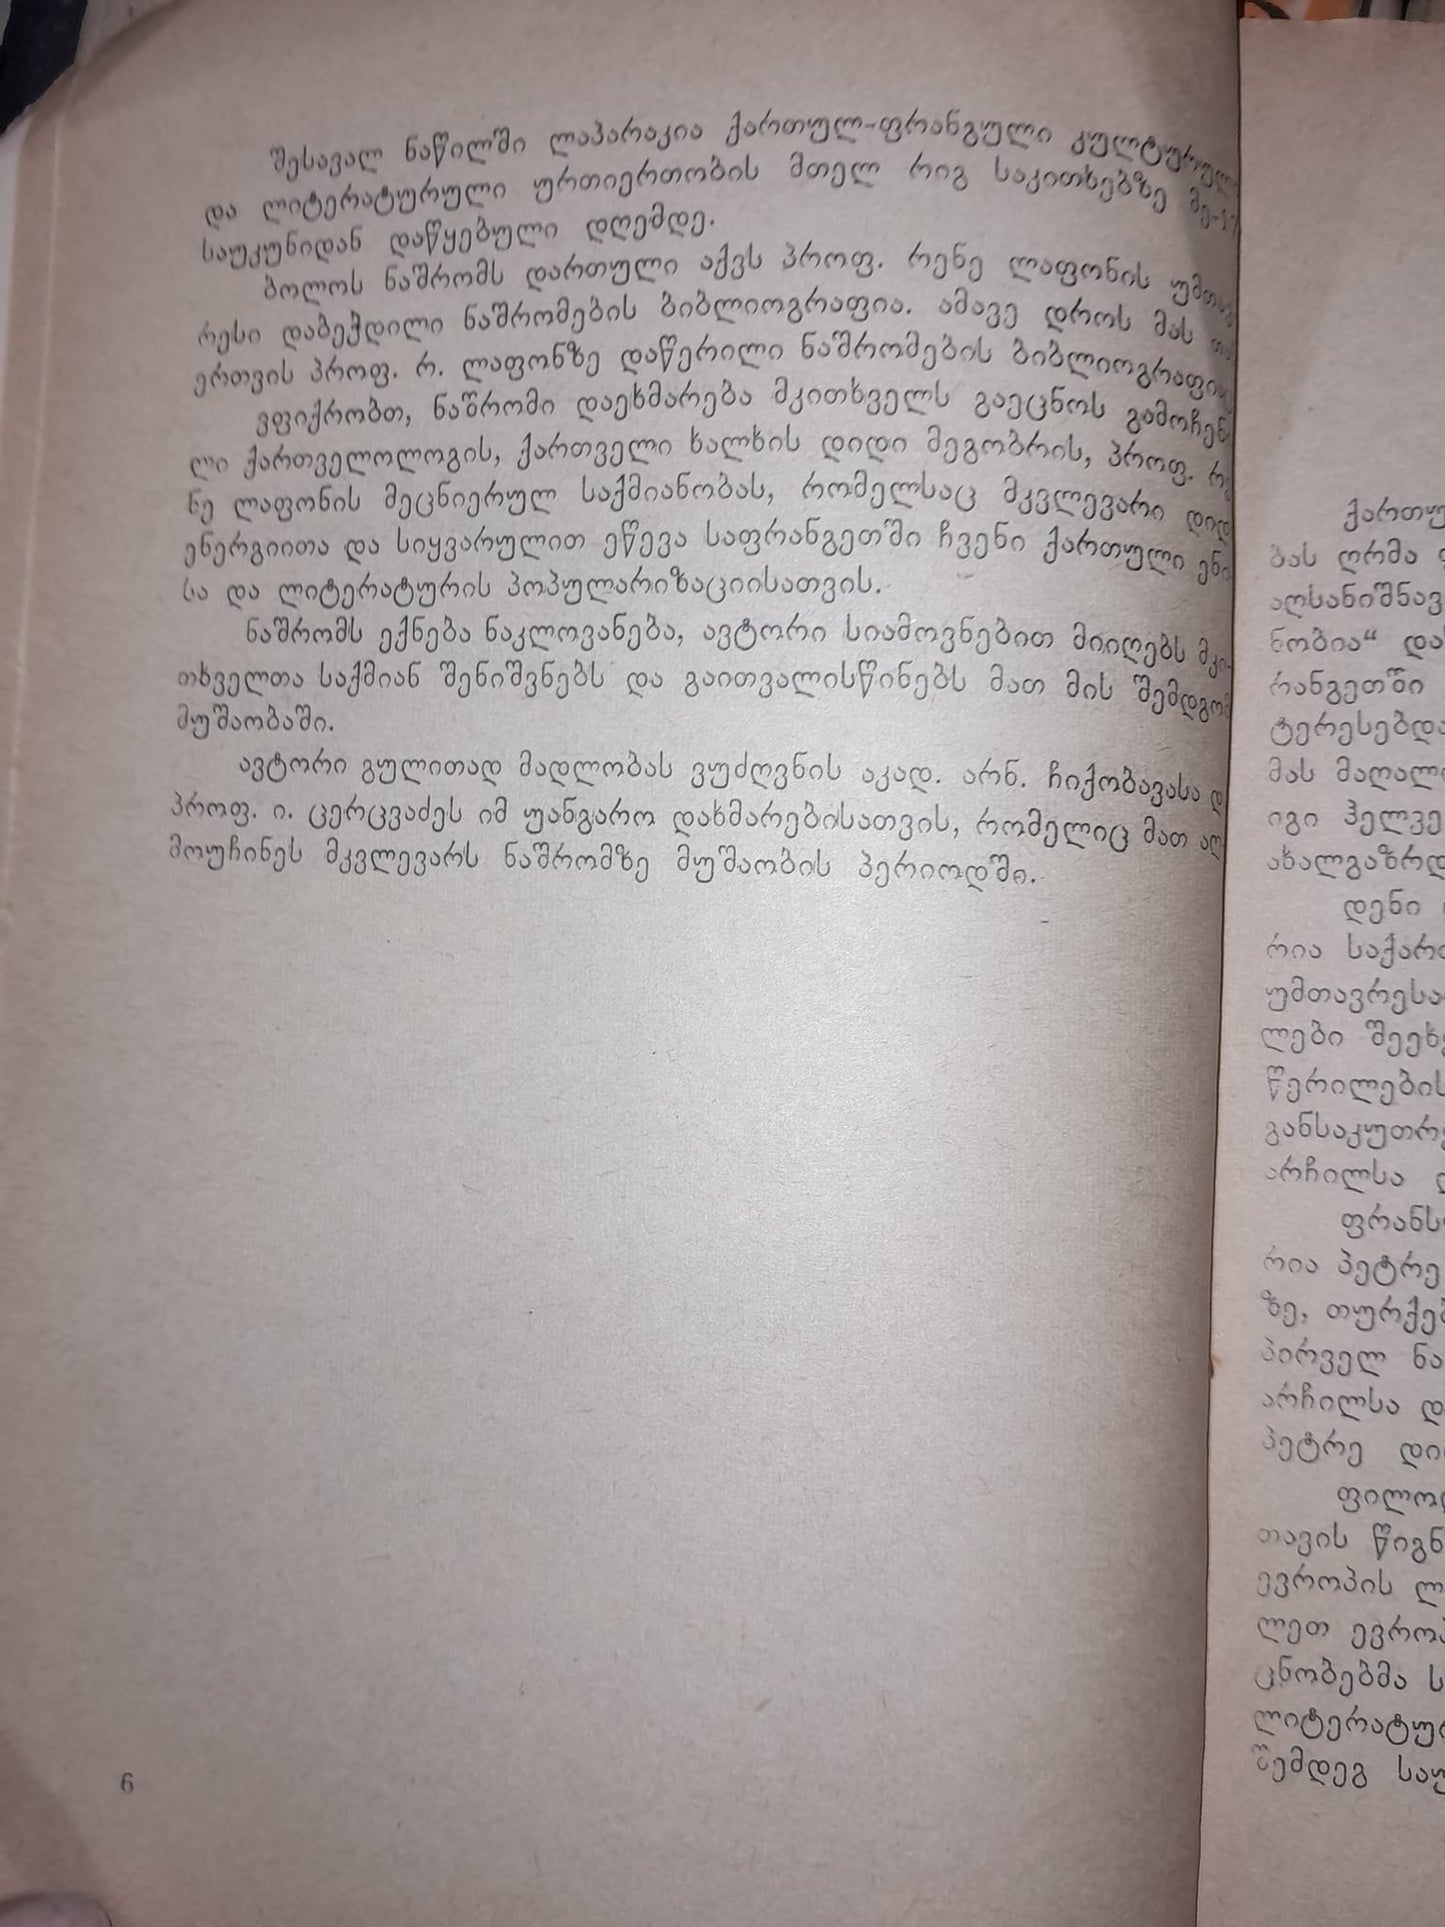 შესავალ ნაწილში ლაპარაკია ქართულ-ფრანგული კულტურულ
და ლიტერატურული ურთიერთობის მთელ რიგ საკითხებზე მე-17
საუკუნიდან დაწყებული დღემდე.
ბოლოს ნაშრომს დართული აქვს პროფ. რენე ლაფონის
რესი დაბეჭდილი ნაშრომების ბიბლიოგრაფია. ამავე დროს მას
ერთვის პროფ. რ. ლაფონზე დაწერილი ნაშრომების ბიბლიოგრაფია
ვფიქრობთ, ნაშრომი დაეხმარება მკითხველს გაეცნოს გამოჩენ
ლი ქართველოლოგის, ქართველი ხალხის დიდი მეგობრის, პროფ. რე
ნე ლაფონის მეცნიერულ საქმიანობას, რომელსაც მკვლევარი დიდ
ენერგიითა და სიყვარულით ეწევა საფრანგეთში ჩვენი ქართული ენი
სა და ლიტერატურის პოპულარიზაციისათვის.
ნაშრომს ექნება ნაკლოვანება, ავტორი სიამოვნებით მიიღებს მკი-
თხველთა საქმიან შენიშვნებს და გაითვალისწინებს მათ მის შემდგომ
მუშაობაში.
ავტორი გულითად მადლობას ვუძღვნის აკად. არნ. ჩიქობავასა დ
პროფ. ი. ცერცვაძეს იმ უანგარო დახმარებისათვის, რომელიც მათ აღ
მოუჩინეს მკვლევარს ნაშრომზე მუშაობის პერიოდში.
6
ქართუ
ბას ღრმა
აღსანიშნავ
ნობია“ და
რანგეთში
ტერესებდა
მას მაღალ
იგი ჰელვე
ახალგაზრდ
დენი
რია საქართ
უმთავრესა
ლები შეეხ
წერილების
განსაკუთრე
არჩილსა დ
ფრანს
რია პეტრე
ზე, თურქებ
პირველ ნა
არჩილსა დ
პეტრე დი
ფილო
თავის წიგნ
ევროპის ლ
ლეთ ევროპ
ცნობებმა ს
ლიტერატურ
შემდეგ საუ